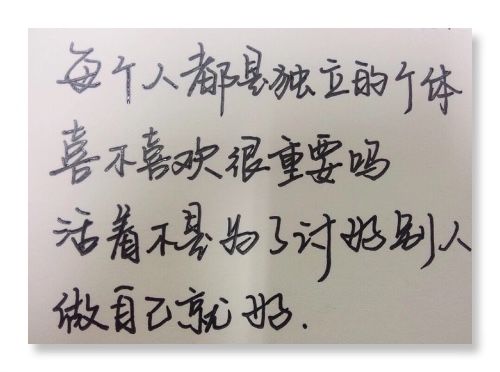 每个人都是独立的个体
喜不喜欢很重要吗
活着不是为了讨好别人
做自己就好.